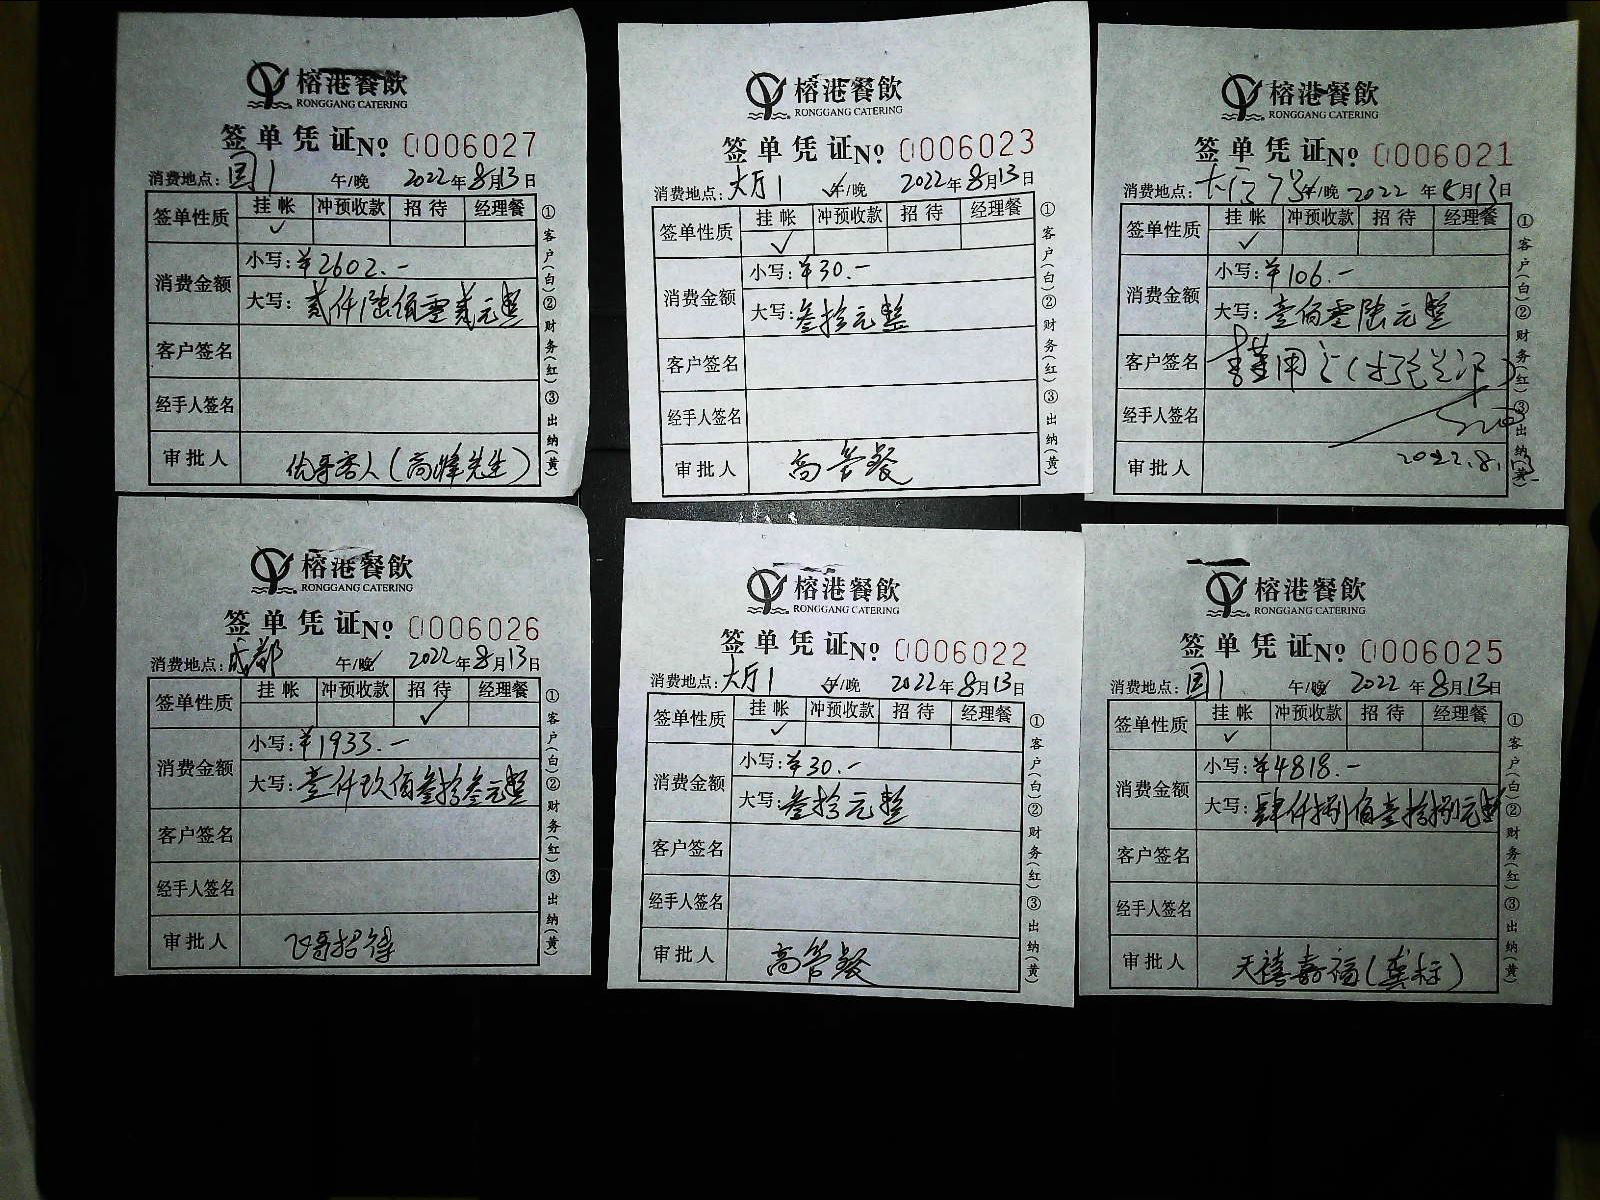 榕港餐飲
RONGGANG CATERING
签单凭证 No 0006027
消费地点：国1 午/晚 2022年8月13日
签单性质 挂帐 冲预收款 招待 经理餐
✓
消费金额 小写：￥2602.一
大写：贰仟陆佰零贰元整
客户签名
经手人签名
审批人 优哥客人（高峰先生）
①客户（白）②财务（红）③出纳（黄）
榕港餐飲
RONGGANG CATERING
签单凭证 No 0006023
消费地点：大厅1 午/晚 2022年8月13日
签单性质 挂帐 冲预收款 招待 经理餐
✓
消费金额 小写：￥30.一
大写：叁拾元整
客户签名
经手人签名
审批人 高管餐
①客户（白）②财务（红）③出纳（黄）
榕港餐飲
RONGGANG CATERING
签单凭证 No 0006021
消费地点：大厅 午/晚 2022年8月13日
签单性质 挂帐 冲预收款 招待 经理餐
✓
消费金额 小写：￥106.一
大写：壹佰零陆元整
客户签名
经手人签名
审批人 2022.8.13
①客户（白）②财务（红）③出纳（黄）
榕港餐飲
RONGGANG CATERING
签单凭证 No 0006026
消费地点：成都 午/晚 2022年8月13日
签单性质 挂帐 冲预收款 招待 经理餐
✓
消费金额 小写：￥1933.一
大写：壹仟玖佰叁拾叁元整
客户签名
经手人签名
审批人 飞哥招待
①客户（白）②财务（红）③出纳（黄）
榕港餐飲
RONGGANG CATERING
签单凭证 No 0006022
消费地点：大厅1 午/晚 2022年8月13日
签单性质 挂帐 冲预收款 招待 经理餐
✓
消费金额 小写：￥30.一
大写：叁拾元整
客户签名
经手人签名
审批人 高管餐
①客户（白）②财务（红）③出纳（黄）
榕港餐飲
RONGGANG CATERING
签单凭证 No 0006025
消费地点：国1 午/晚 2022年8月13日
签单性质 挂帐 冲预收款 招待 经理餐
✓
消费金额 小写：￥4818.一
大写：肆仟捌佰壹拾捌元整
客户签名
经手人签名
审批人 天禧嘉福（龚标）
①客户（白）②财务（红）③出纳（黄）